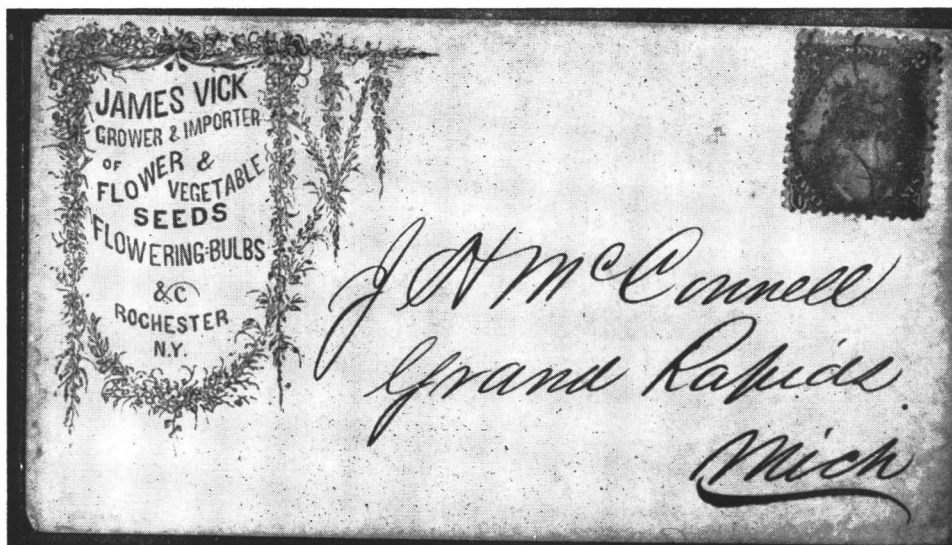 JAMES VICK
GROWER & IMPORTER
OF
FLOWER &
VEGETABLE
SEEDS
FLOWERING-BULBS
&C
ROCHESTER
N.Y.
J H McConnell
Grand Rapids.
Mich